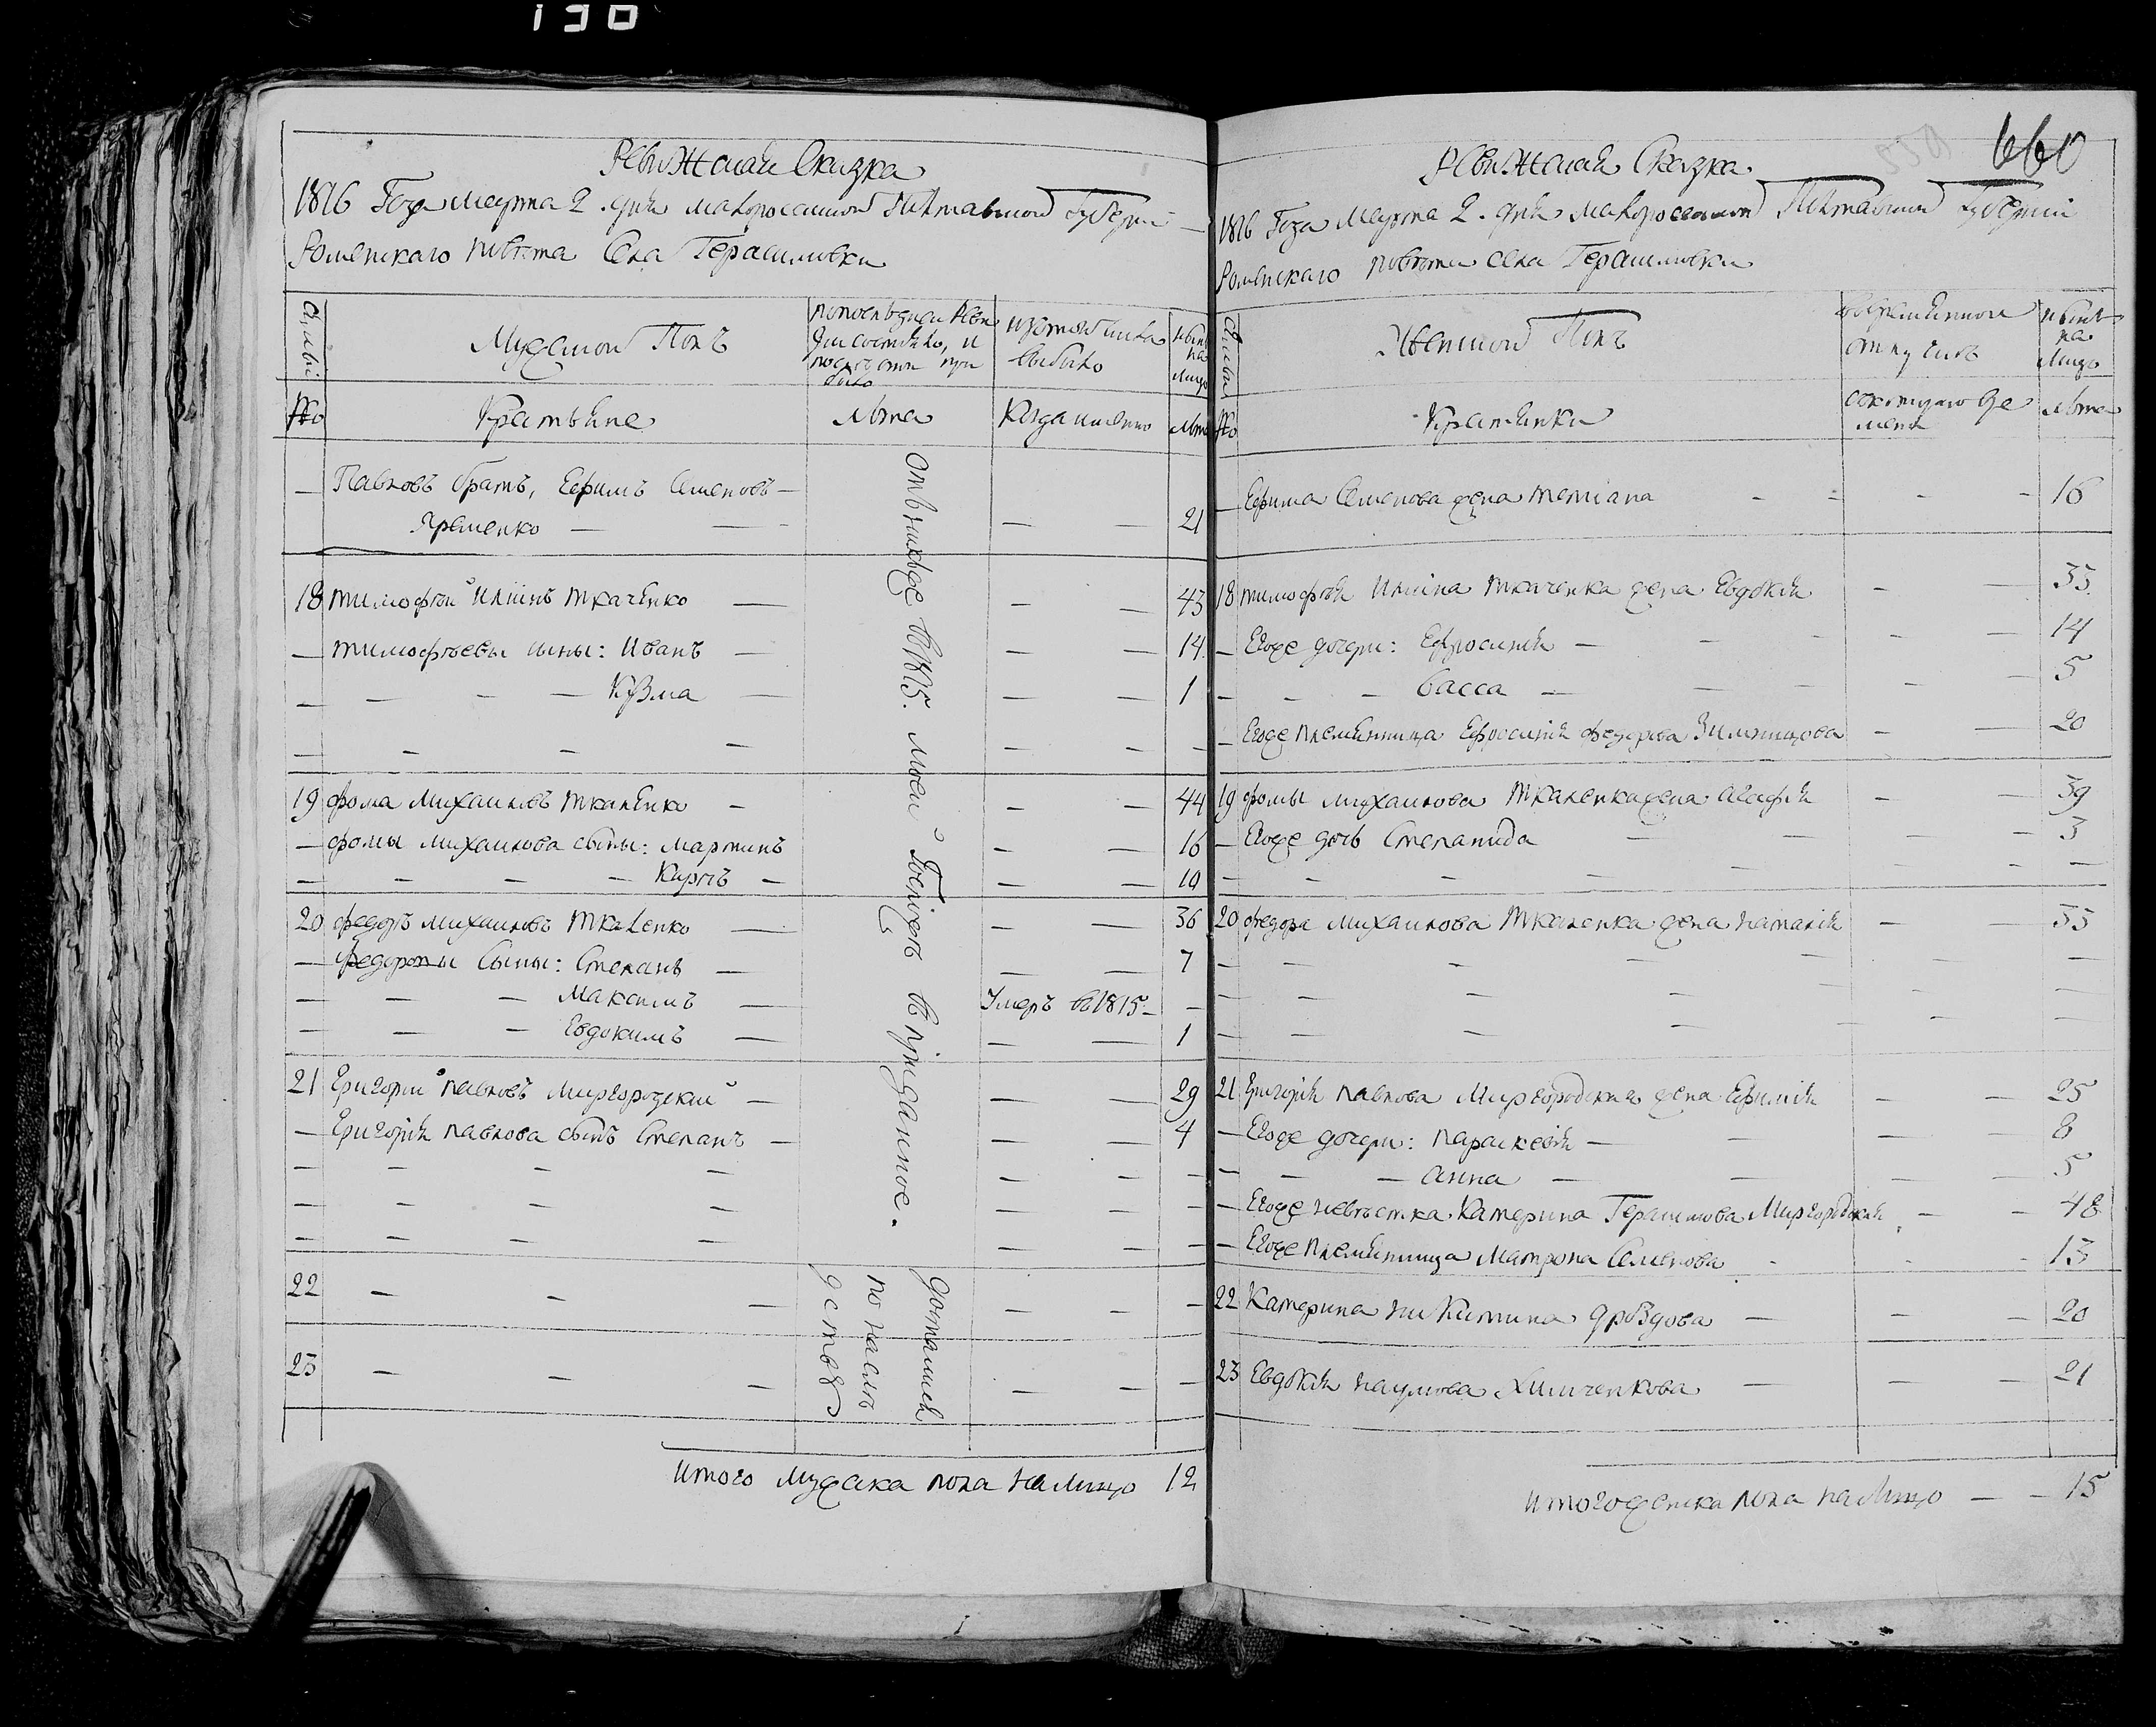 130
Ревижская Сказка
1816 Года Марта 2. дня малороссийской Полтавской Губерній
Роменскаго повѣта Села Герасимовки
Семьи
Мужеской Полъ
по последней Реви
зіи состояло, и
послѣ оти при
было
изъ того числа
выбыло
нынѣ
на
лицо
№
Крестьяне
лѣта
Когда именно
лѣта
Павловъ братъ, Ефимъ Семеновъ
Яременко — — — 21
18 тимофѣй Ильинъ Ткаченко — — — 43
— тимофѣевы сыны: Иванъ — — — 14
— — — — Кузма — — — 1
— — — — — — —
19 фома Михаиловъ Ткаченко — — — 44
— фомы Михаилова сыны: Мартинъ — — 16
— — — — Карпъ — — — 10
20 федоръ Михаиловъ Ткаченко — — — 36
— Федоровы Сыны: Степанъ — — — 7
— — — Максимъ — Умеръ въ 1815 — —
— — — Евдокимъ — — — 1
21 Григорій павловъ Миргородскій — — — 29
— Григорія павлова сынъ Степанъ — — — 4
— — — — — — —
— — — — — — —
— — — — — — —
22 — — — — — —
23 — — — — — —
въ 1815. моей
въ приданное.
доставшей
по наслѣ
дству
итого мужеска пола на лицо 12
660
Ревижская Сказка
1816 Года Марта 2. дня малороссійской Полтавской Губерніи
Роменскаго повѣта села Герасимовки
Семьи
Женской Полъ
во временной
отлучкѣ
нынѣ
на
лицо
№
Крестьянки
съ котораго вре
мени
лѣта
— Ефима Семенова жена татіана — — — 16
18 тимофѣя Ильина Ткаченка жена Евдокія — — 35
— Егоже дочери: Ефросинія — — — — 14
— — — васса — — — — 5
— Егоже племянница Ефросинія федорова — — 20
19 фомы михаилова Ткаченка жена Агафія — — 39
— Егоже дочь Степанида — — — — 3
— — — — — — —
20 федора михаилова Ткаченка жена наталія — — 35
— — — — — — —
— — — — — — —
— — — — — — —
21 Григорія павлова Миргородскаго жена Ефимія — — 25
— Егоже дочери: параскевія — — — 8
— — — анна — — — 5
— Егоже невѣстка Катерина Герасимова Миргородская — — 48
— Егоже племянница Матрона Семенова — — — 13
22 Катерина никитина дроздова — — — 20
23 Евдокія наумова Химченкова — — — 21
итого женска пола на лицо — — 15